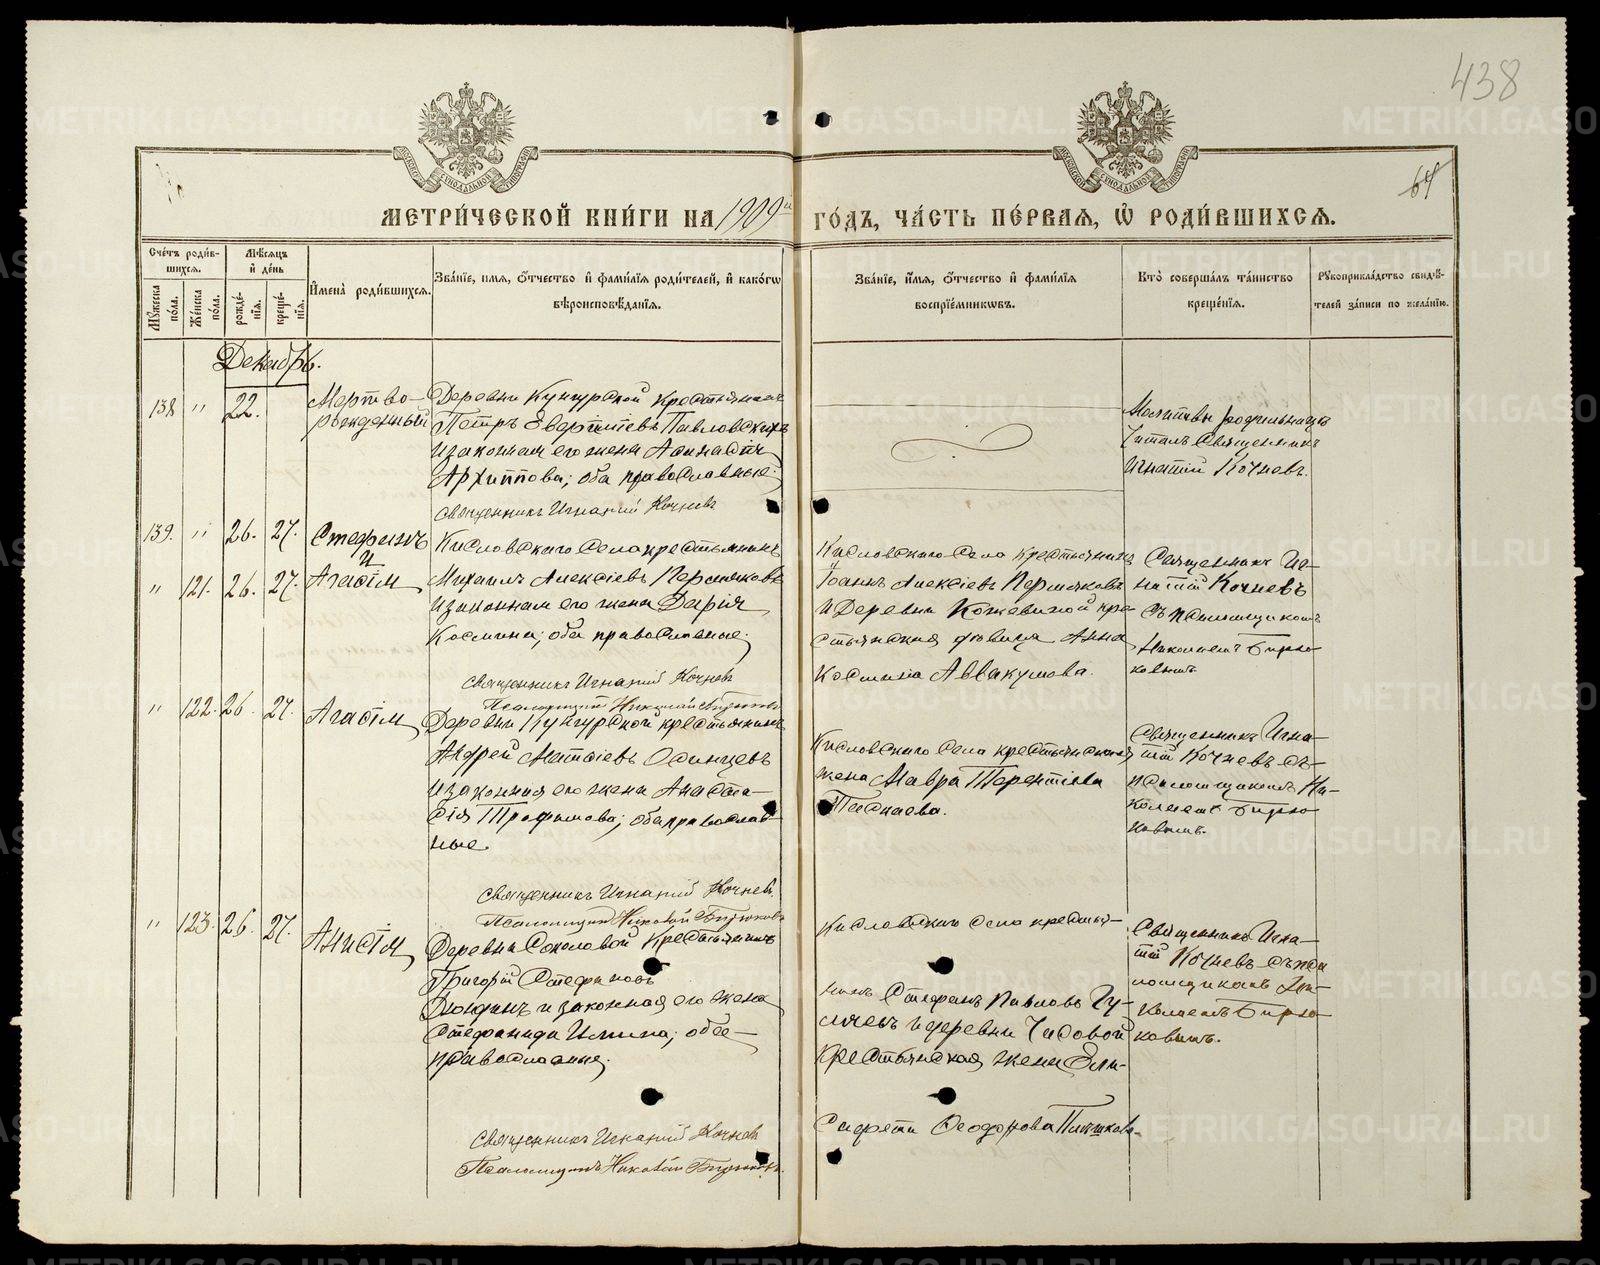 438
64
МЕТРИ́ЧЕСКОЙ КНИ́ГИ НА 1909й ГО́ДЪ, ЧА́СТЬ ПЕ́РВАЯ, Ѽ РОДИ́ВШИХСЯ.
Сче́тъ роди́вшихся.
Му́жеска по́ла.
Же́нска по́ла.
Мѣ́сяцъ и де́нь
рожде́нїя.
креще́нїя.
Имена̀ роди́вшихся.
Зва́нїе, имя, ѻ́тчество и фами́лїя роди́телей, и како́гѡ
вѣроисповѣ́данїя.
Зва́нїе, и́мя, ѻ́тчество и фами́лїя
воспрїе́мникѡвъ.
Кто̀ соверша́лъ та́инство
креще́нїя.
Рꙋкоприкла́дство свидѣ́-
телей за́писи по жела́нїю.
Декабрь.
138 " 22.
Мертво-
рожденный
Деревни Кунгурской крестьянинъ
Петръ Евөиміевъ Павловскихъ
и законная его жена
Архиппова; оба православные.
Священникъ Игнатій Кочневъ
Молитвы родильницѣ
читалъ Священникъ
Игнатій Кочневъ.
139. " 26. 27.
Стефанъ
и
" 121. 26. 27.
Агафія
Кисловскаго села крестьянинъ
Михаилъ Алексіевъ Пермяковъ
и законная его жена Дарія
Косьмина; оба православные.
Священникъ Игнатій Кочневъ
Псаломщикъ Николай Бирюковъ
Кисловскаго села крестьянинъ
Іоаннъ Алексіевъ Пермяковъ
и Деревни Кожевиной кре-
стьянская дѣвица Анна
Космина Аввакумова.
Священникъ Иг-
натій Кочневъ
съ псаломщикомъ
Николаемъ Бирю-
ковымъ
" 122. 26. 27.
Агафія
Деревни Кунгурской крестьянинъ
Андрей Матфіевъ Осинцевъ
и законная его жена Анаста-
сія Трофимова; оба православ-
ные.
Священникъ Игнатій Кочневъ.
Псаломщикъ Николай Бирюковъ
Кисловскаго села крестьянская
жена Мавра Терентіева
Таскаева.
Священникъ Игна-
тій Кочневъ съ
псаломщикомъ Ни-
колаемъ Бирю-
ковымъ.
" 123. 26. 27.
Анисія
Деревни Соколовой крестьянинъ
Григорій Стефановъ
и законная его жена
Стефанида Ильина; оба
православные.
Священникъ Игнатій Кочневъ
Псаломщикъ Николай Бирюковъ.
Кисловскаго села крестья-
нинъ Стефанъ Павловъ Гу-
и деревни Часовой
крестьянская жена Ели-
савета Ѳеодорова
Священникъ Игна-
тій Кочневъ съ пса-
ломщикомъ Ни-
колаемъ Бирю-
ковымъ.
METRIKI.GASO-URAL.RU